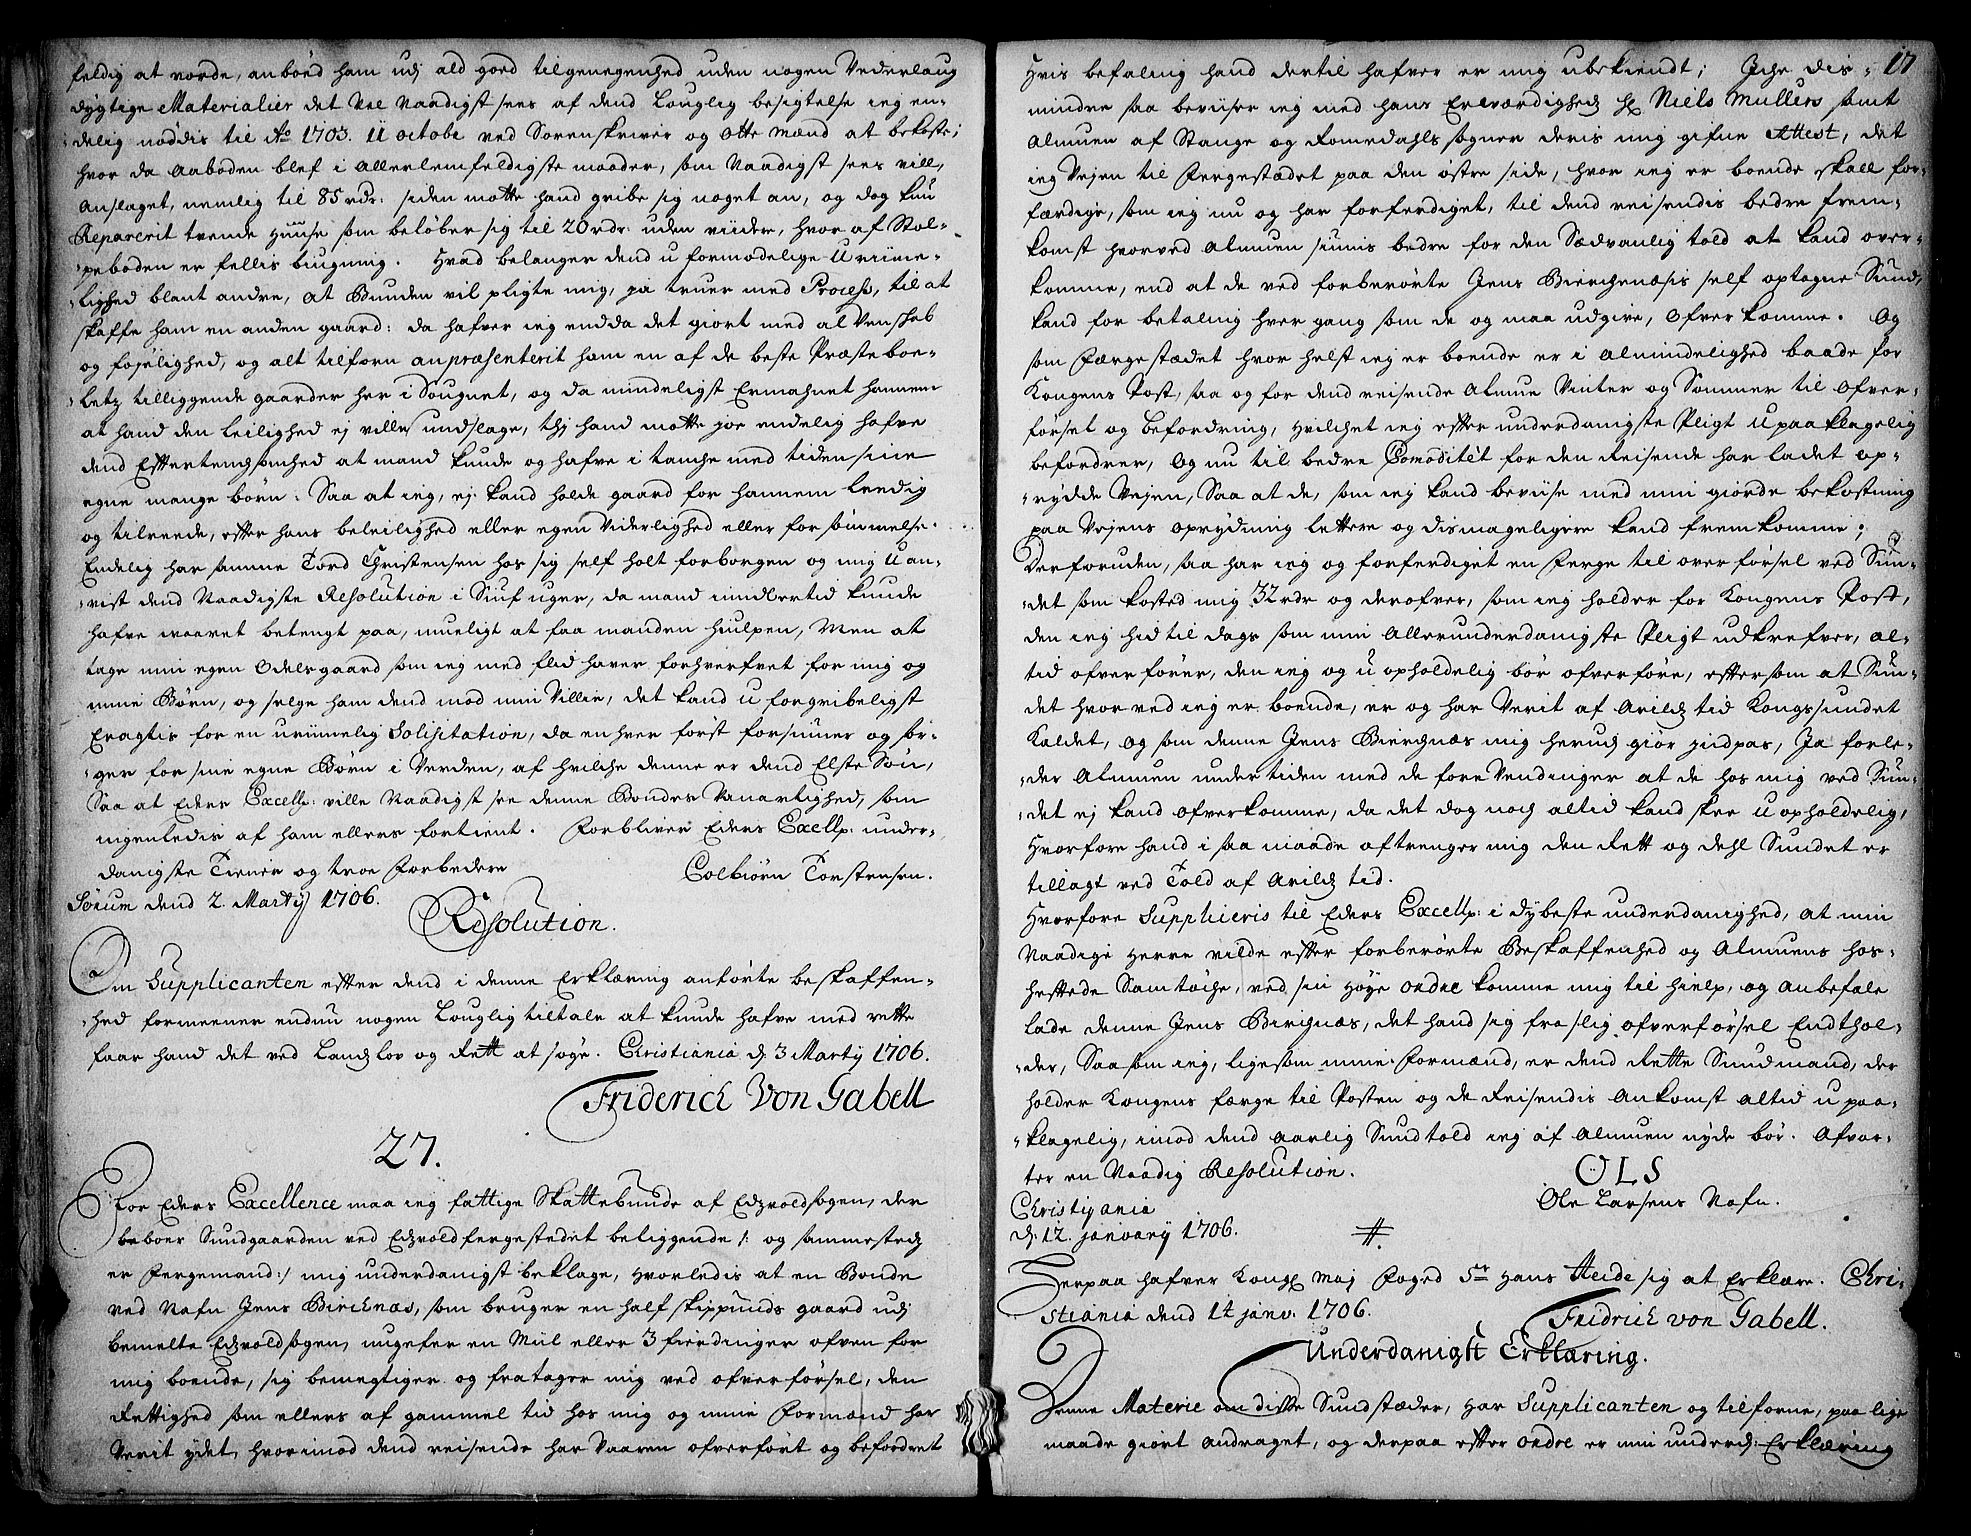 feldig at vorde, anbœd ham udj ald goed tilgenegenhed uden nogen Vederlaug
dygtige Materialier det Vel Naadigst sees af dend Louglig besigtelse ieg en-
delig nøddis til Ao 1703. 11 octobr ved Sorenskriver og Otte mænd at bekoste;
hvor da Aaboden blef i allerlemfeldigste maader, som Naadigst sees vill,
anslaget, nemlig til 85 rdr: siden motte hand gribe sig noget an, og dog kun
Reparerit tvende Huuse som beløber sig til 20 rdr: uden viider, hvor af Stol-
peboden er fellis biugning. Hvad belanger dend uformodelige Uriime-
lighed blant andre, at Bunden vil pligte mig, ja truer med Process, til at
skaffe ham en anden gaard: da hafver ieg endda det giort med al Venskeb
og føjelighed, og alt tilforn anpræsenterit ham en af de beste Præsteboe-
letz tilliggende gaarder her i Sougnet, og da mindeligst Ermahnet hannem
at hand den leilighed ej ville undslage, thj hand motte joe endelig hafve
dend Efftertencksomhed at mand kunde og hafve i tancke med tiden sine
egne mange børn: Saa at ieg, ej kand holde gaard for hannem leedig
og tilreede, effter hans beleilighed eller egen Viderlighed eller forsømmelse.
Endelig har samme Tord Christensen hos sig self holt forborgen og mig Uan-
vist dend Naadigste Resolution i Siuf uger, da mand imidlertid kunde
hafve vaaret betengt paa, mueligt at faa manden hiulpen, Men at
tage min egen Odelsgaard som ieg med flid haver forhverfvet for mig og
mine Børn, og selge ham dend mod min Villie, det kand uforgribeligst
Eragtis for en urimelig Solisitation, da en hver først forsiuner og sør-
ger for sine egne Børn i Verden, af hvilcke denne er dend Elste Søn,
Saa at Eders Excellz: ville Naadigst see denne Bondes Vanartighed, som
ingenledis af ham ellers fortient. Forbliver Eders Excellz: under-
danigste Tiener og troe Forbedere
Colbiørn Torstensen.
Sørum dend 2. Martij 1706.
Resolution.
Om Supplicanten effter dend i denne Erklæring anførte beskaffen-
hed formeener endnu nogen Louglig tiltale at kunde hafve med rette
faar hand det ved Landslov og Rett at søge. Christiania d: 3 Martij 1706.
Friderich Von Gabell
27.
For Eders Excellence maa ieg fattige Skattebunde af Edzvoldsogen, der
beboer Sundgaarden ved Edzvold fergestedet beliggende /: og sammesteds
er Fergemand :/ mig underdanigst beklage, hvorledis at en Bonde
ved Nafn Jens Bircknæs, som bruger en half skippunds gaard udj
bemelte Edzvoldsogen, ungefer en Miil eller 3 fierdinger ofven for
mig boende, sig bemegtiger og fratager mig ved ofverførsel, den
Rettighed som ellers af gammel tid hos mig og mine Formænd har
Verit ydet, hvorimod dend reisende har Vaaren ofverført og befordret
17
Hvis befaling hand dertil hafver er mig ubekiendt; Icke dis-
mindre saa beviiser ieg med hans Ereværdigheds Hr Niels Mullers samt
Almuen af Stange og Romedahls sogner deris mig gifne Attest, det
ieg Vejen til Fergestædet paa den østre side, hvor ieg er boende skall for-
færdige, som ieg nu og har forferdiget, til dend reisendis bedre frem-
komst hvorved Almuen siunis bedre for den Sædvanlig told at kand over-
komme, end at de ved forberørte Jens Bierchenæsis self optagne Sund,
kand for betaling hver gang som de og maa udgive, ofverkomme. Og
som Færgestædet hvor helst ieg er boende er i Almindelighed baade for
Kongens Post, saa og for dend reisende Almue Vinter og Sommer til ofver-
førsel og befordring, hvilchet ieg effter underdanigste Pligt upaaklagelig
befordrer, Og nu til bedre Comoditet for den Reisende har ladet op-
rydde Vejen, Saa at de, som ieg kand beviise med min giorde bekostning
paa Vejens oprydning lettere og dismageligere kand fremkomme;
Derforuden, saa har ieg og forferdiget en Ferge til overførsel ved Sun-
det som kosted mig 32 rdr og derofver, som ieg holder for Kongens Post,
den ieg hid til dags som min Allerunderdanigste Pligt udkrefver, al-
tid ofverfører, den ieg og uopholdelig bør ofverføre, efftersom at Sun-
det hvorved ieg er boende, er og har Verit af Arilds tid Kongssundet
Kaldet, og som denne Jens Bierchnæs mig herudj giør jndpas, Ja forle-
der Almuen undertiden med de forevendinger at de hos mig ved Sun-
det ej kand ofverkomme, da det dog noch altid kand skee uopholdelig,
Hvorfore hand i saa maade aftrenger mig den Rett og dehl Sundet er
tillagt ved Told af Arilds tid.
Hvorfore Supplicris til Eders Excellz: i dybeste underdanighed, at min
Naadige Herre vilde effter forberørte Beskaffenhed og Almuens hos-
heftede Samtøche, ved sin høye ordre komme mig til hielp, og anbefale
lade denne Jens Birchnæs, det hand sig fra slig ofverførsel Endthol-
der, Saasom ieg, ligesom mine Formænd, er dend Rette Sundmand, der
holder Kongens færge til Posten og de Reisendis Ankomst altid upaa-
klagelig, imod dend Aarlig Sundtold ieg af Almuen nyde bør. Afvar-
ter en Naadig Resolution.
OLS
Ole Larsens Nafn.
Christiania
d: 12. january 1706.
#.
Herpaa hafver Kongl Maj Foged Sr Hans Heide sig at Erklære. Chri-
stiania dend 14 janv. 1706.
Fridrich von Gabell.
Underdanigst Erklæring.
Denne Materie om disse Sundstæder, har Supplicanten og tilforne, paa lige
maade giort andraget, og derpaa effter ordre er min underd: Erklæring